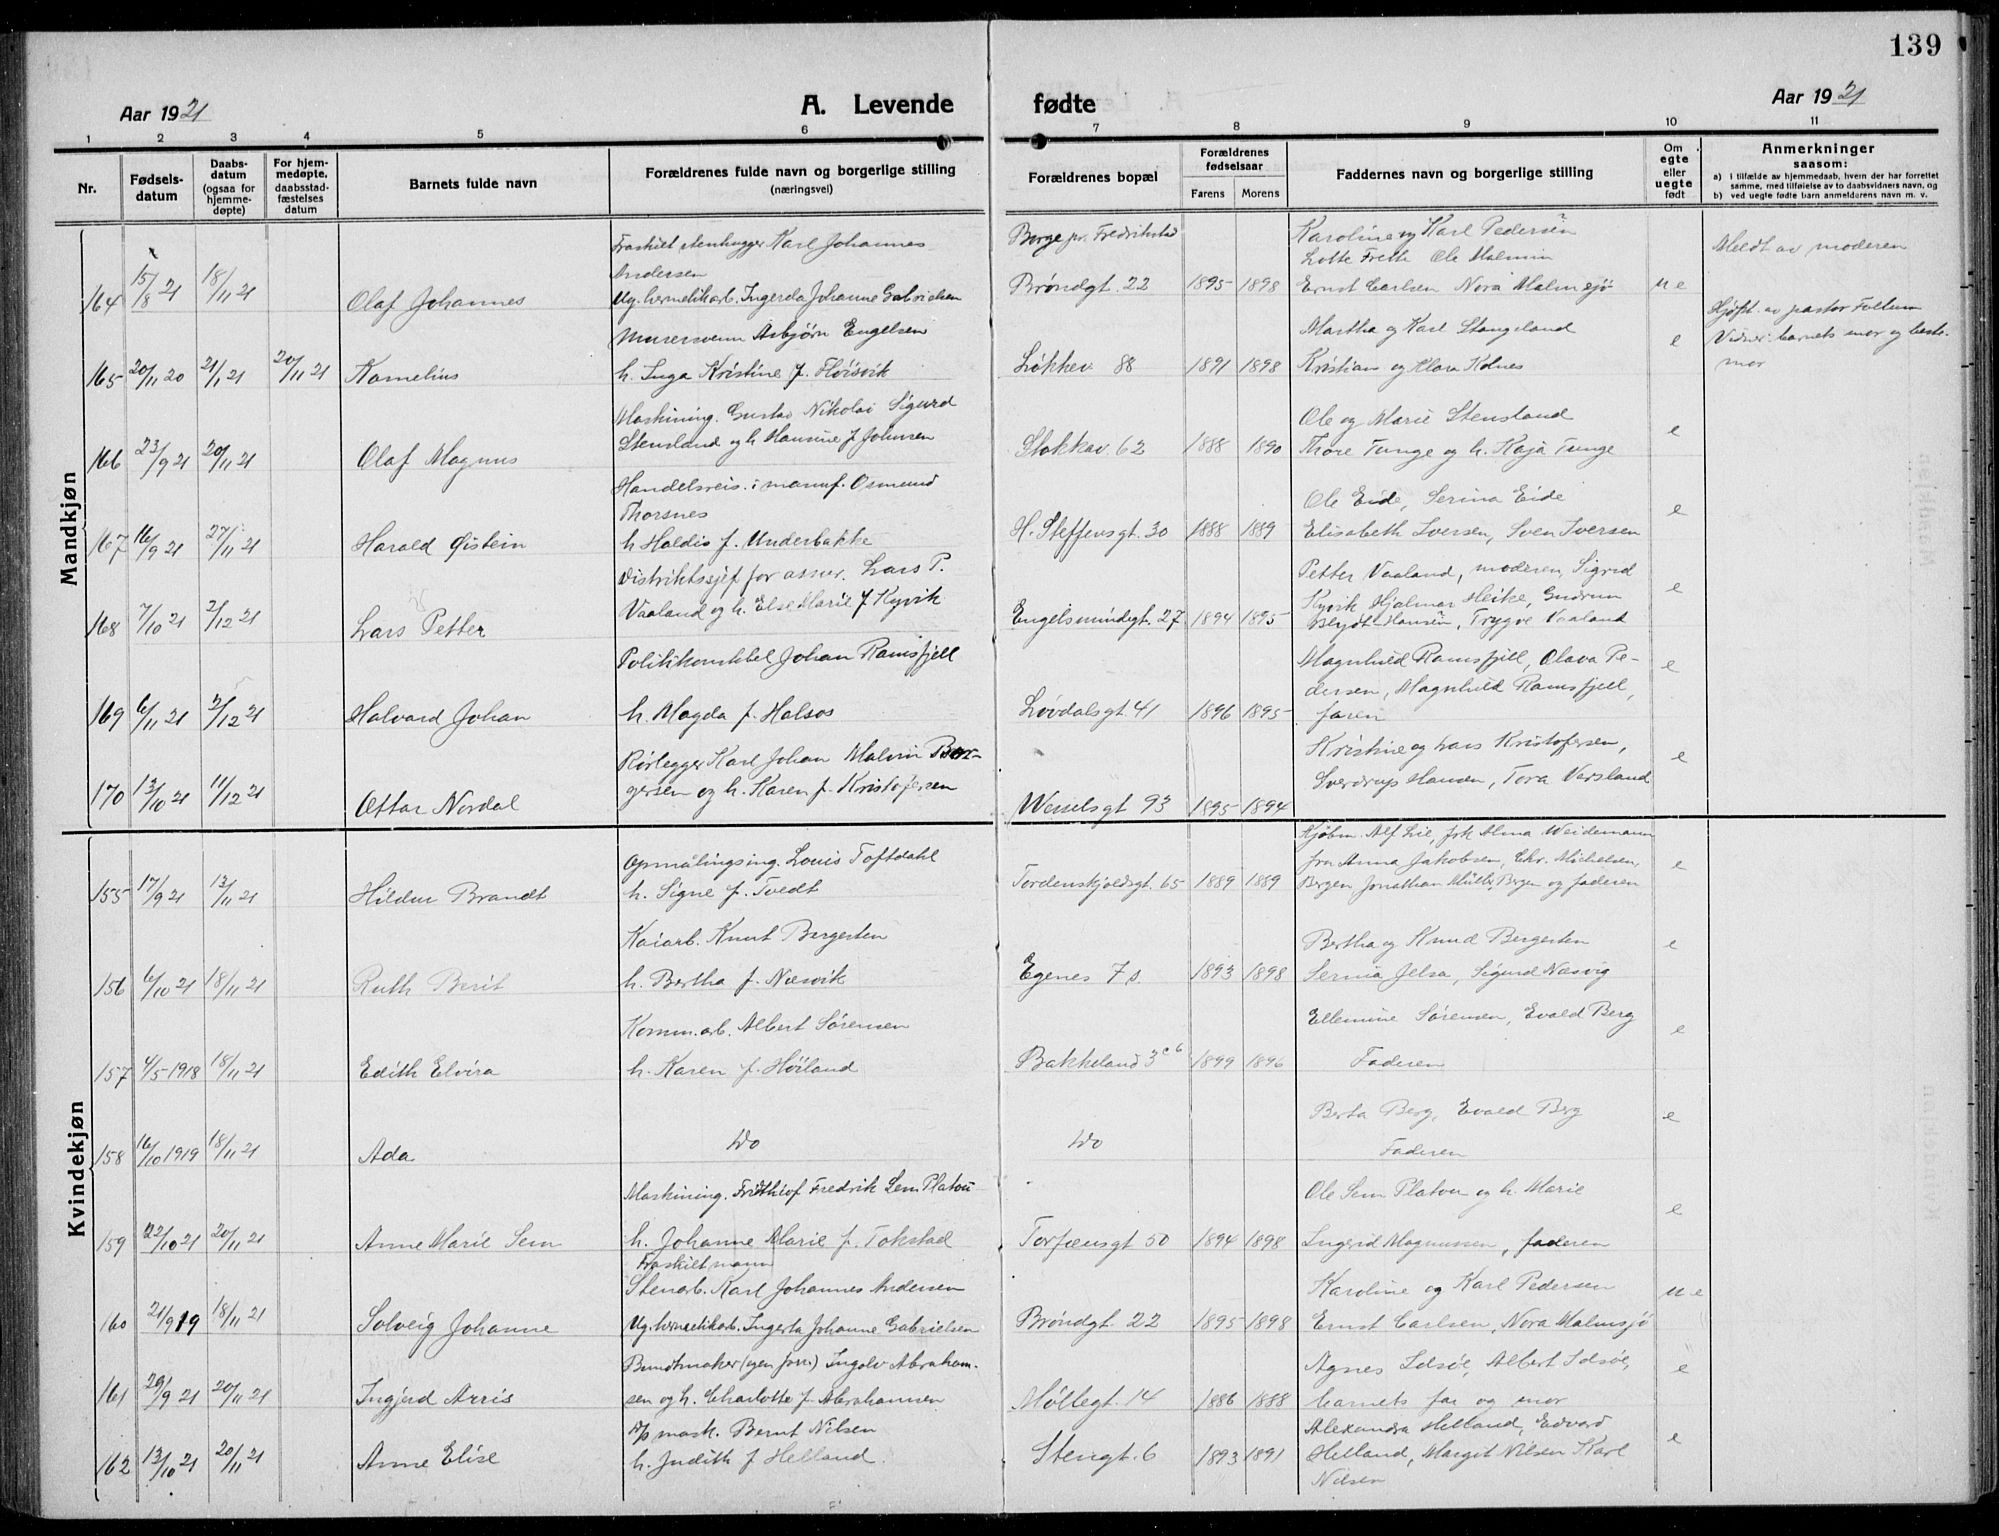 139
Aar 1921
A. Levende
fødte
Aar 1921
1 2 3 4 5 6 7 8 9 10 11
Nr.
Fødsels-
datum
Daabs-
datum
(ogsaa for
hjemme-
døpte)
For hjem-
medøpte,
daabsstad-
fæstelses
datum
Barnets fulde navn
Forældrenes fulde navn og borgerlige stilling
(næringsvei)
Forældrenes bopæl
Forældrenes
fødselsaar
Farens Morens
Faddernes navn og borgerlige stilling
Om
egte
eller
uegte
født
Anmerkninger
saasom:
a) i tilfælde av hjemmedaab, hvem der har forrettet
samme, med tilføielse av to daabsvidners navn, og
b) ved uegte fødte barn anmelderens navn m. v.
Mandkjøn
Fraskilt stenhugger Karl Johannes
Andersen
Borge pr. Fredrikstad
Karoline og Karl Pedersen
Lotte Freth Ole Malmin
Meldt av moderen
164 15/8 21 18/11 21 Olaf Johannes
Ug. hermetikarb. Ingerda Johanne Gabrielsen
Brøndgt. 22 1895 1898 Ernst Carlsen Nora Malmsjø ue
Murersvenn Asbjørn Engelsen
Martha og Karl Stangeland e
Hjdøpt. av pastor
Vidner: barnets mor og beste-
mor
165 20/11 20 21/1 21 20/11 21 Kornelius
h. Inga Kristine f. Høisvik
Løkkev. 88 1891 1898 Kristian og Klara Kolnes
Maskining. Gustav Nikolai Sigurd
Ole og Marie Stensland e
166 23/9 21 20/11 21 Olaf Magnus
Stensland og h. Hansine f. Johnsen
Stokkav. 62 1888 1890 Thore Tunge og h. Kaja Tunge
Handelsreis. i manuf. Osmund
Thorsnes
Ole Eide, Serina Eide e
167 16/9 21 27/11 21 Harald Øistein
h. Haldis f. Underbakke
H. Steffensgt. 30 1888 1889 Elisabeth Iversen, Sven Iversen
Distriktssjef for assur. Lars P.
Petter Vaaland, moderen, Sigrid
168 7/10 21 2/12 21 Lars Petter
Vaaland og h. Else Marie f. Kyvik
Engelsmindegt. 27 1894 1895 Kyvik Hjalmar Heike, Gudrun e
Hansen, Trygve Vaaland
Politikonstbel Johan Ramsfjell
Magnhild Ramsfjell, Olava Pe-
dersen, Magnhild Ramsfjell, e
169 6/11 21 2/12 21 Halvard Johan
h. Magda f. Halsos
Løvdalsgt. 41 1896 1895 faren
Rørlegger Karl Johan Malvin Bør-
Kristine og Lars Kristofersen, e
170 13/10 21 11/12 21 Ottar Nordal
gersen og h. Karen f. Kristofersen
Wesselsgt 93 1895 1894 Sverdrup Hansen, Tora Varsland
Kvindekjøn
Opmålingsing. Louis Toftdahl
Kjøbm. Alf Lie, frk Alma Weidemann
fru Anna Jakobsen, Chr. Michelsen,
155 17/9 21 13/11 21 Hildur Brandt
h. Signe f. Tvedt
Tordenskjoldsgt. 65 1889 1889 Bergen Jonathan Müller, Bergen og faderen e
Kaiarb. Knut Bergesten
Bertha og Knud Bergesten e
156 6/10 21 18/11 21 Ruth Berit
h. Bertha f. Næsvik
Egenes 7 1893 1898 Serina Jelsa, Sigurd Næsvig
Komm.arb. Albert Sørensen
Ellemine Sørensen, Evald Berg e
157 4/5 1918 18/11 21 Edith Elvira
h. Karen f. Høiland
Bakkeland 3 c6 1899 1896 Faderen
Berta Berg, Evald Berg e
158 16/10 1919 18/11 21 Ada
Do
Do
Faderen
Maskining. Frithiof Fredrik Sem Platou
Ole Sem Platou og h. Marie e
159 22/10 21 20/11 21 Anne Marie Sem
h. Johanne Marie f. Tokstad
Torfæusgt 50 1894 1898 Ingerid Magnussen, faderen
Fraskilt mann
Stenarb. Karl Johannes Andersen
Karoline og Karl Pedersen ue
160 21/9 19 18/11 21 Solveig Johanne
Ug. hermetikarb. Ingerta Johanne Gabrielsen
Brøndgt. 22 1895 1898 Ernst Carlsen, Nora Malmsjö
Buntmaker (egen forr.) Ingolv Abraham-
Agnes Idsöe, Albert Idsöe, e
161 29/9 21 20/11 21 Ingjerd Arris
sen og h. Charlotte f. Abrahamsen
Møllegt. 14 1886 1888 barnets far og mor
D/p mask. Bernt Nilsen
Alexandra Helland, Edvard e
162 13/10 21 20/11 21 Anne Elise
h. Judith f Helland.
Stengt. 6 1893 1891 Helland, Margit Nilsen Karl
Nilsen